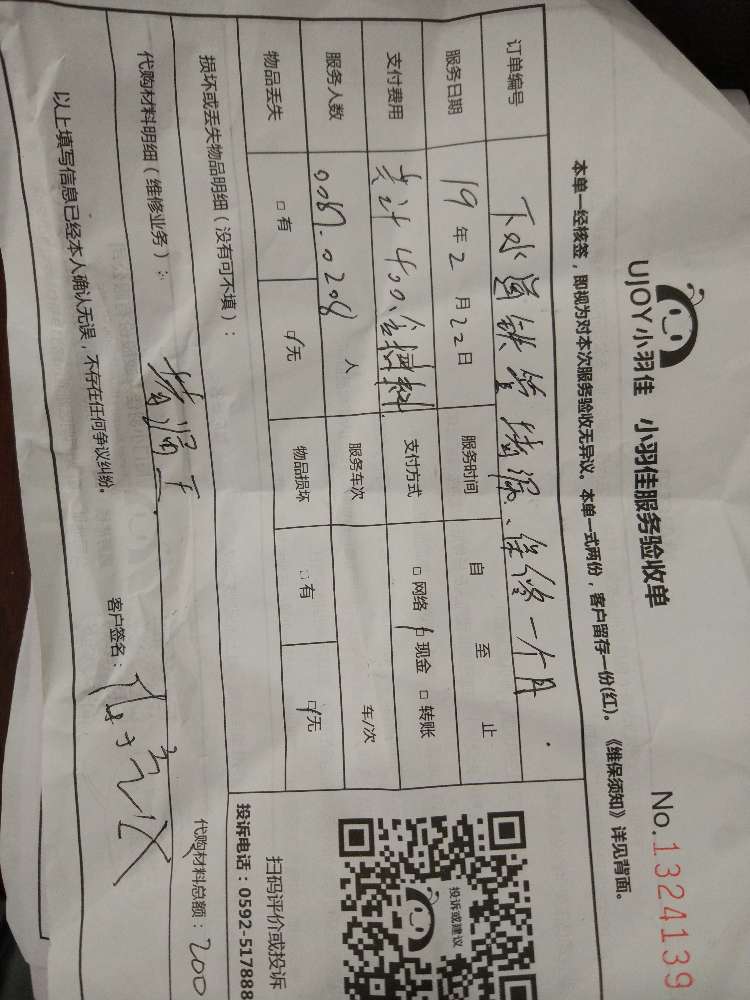 UJOY小羽佳 小羽佳服务验收单
No.1324139
本单一经核签，即视为对本次服务验收无异议。本单一式两份，客户留存一份(红)。《维保须知》详见背面。
订单编号 下水道铁管堵漏、保修一个月.
服务日期 19年2月22日 服务时间 自 至 止
支付费用 共计400含材料 支付方式 □网络 ☑现金 □转账
服务人数 0087.0208 人 服务车次 车/次
物品丢失 □有 ☑无 物品损坏 □有 ☑无
损坏或丢失物品明细（没有可不填）：
代购材料明细（维修业务）： 堵漏王
代购材料总额：200
以上填写信息已经本人确认无误，不存在任何争议纠纷。
客户签名：
投诉或建议
扫码评价或投诉
投诉电话：0592-517888